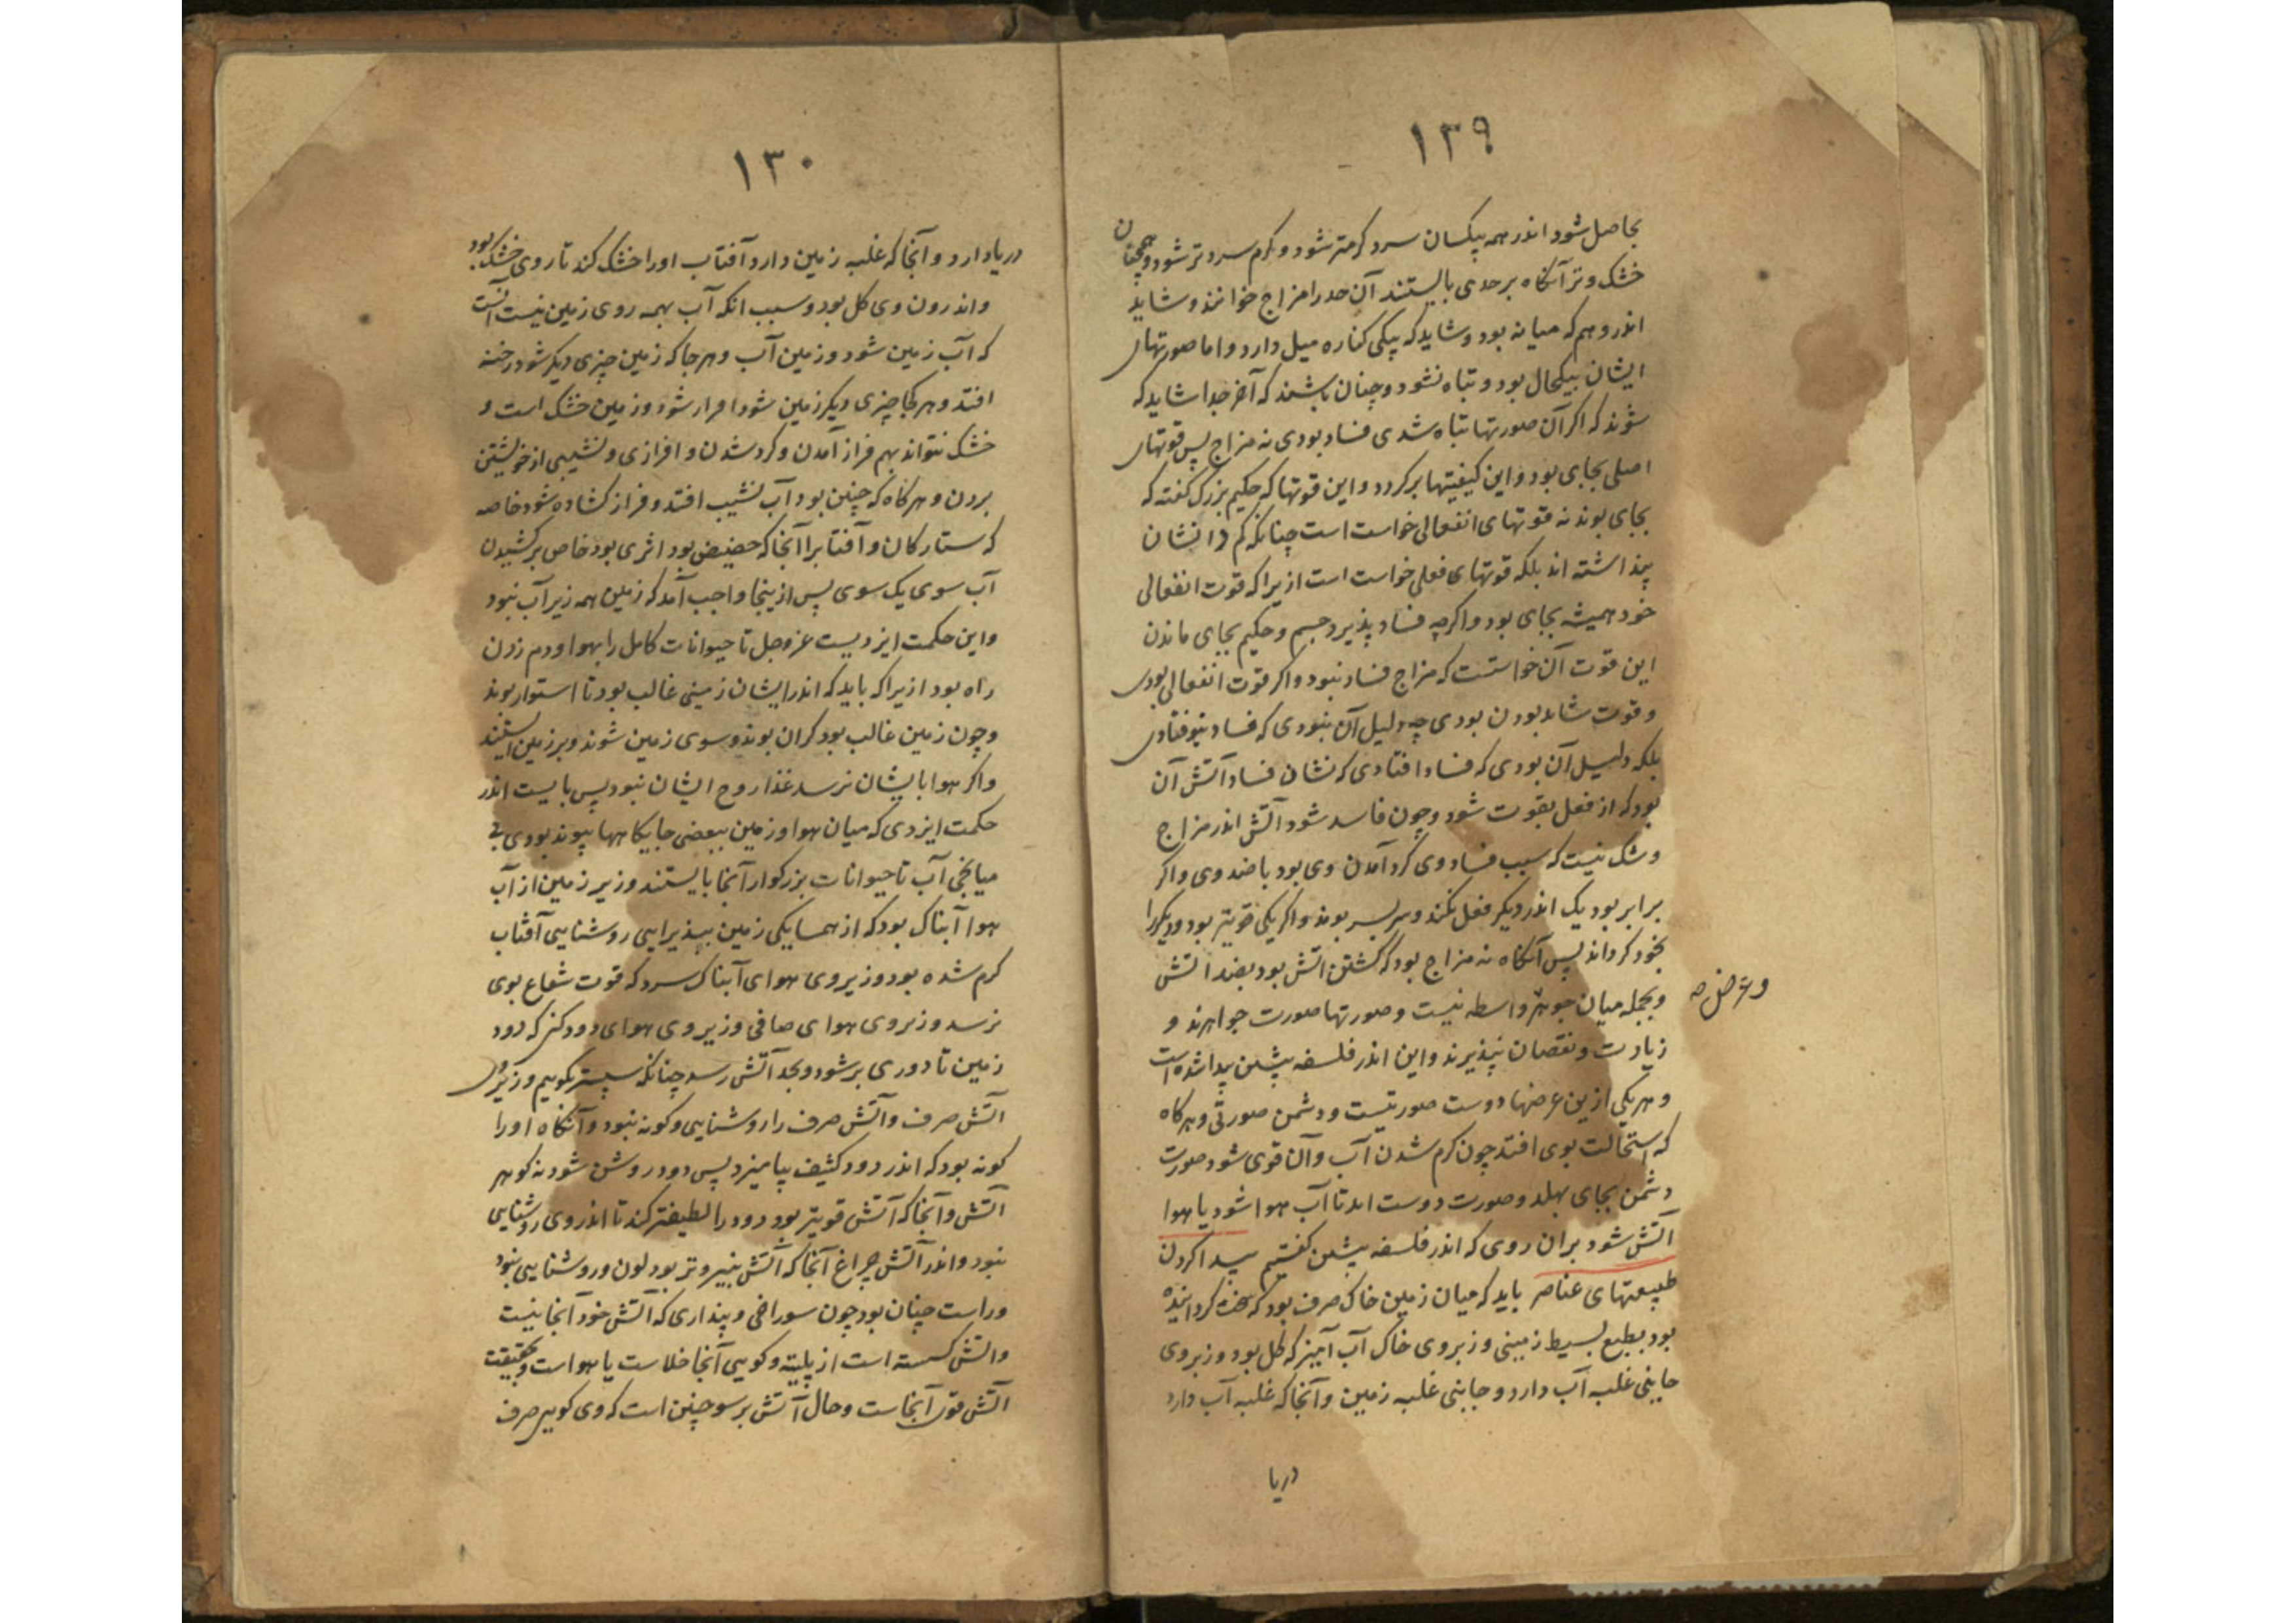 ۱۳۹
بحاصل شود اندر همه یکسان سرد کرمتر شود و کرم سردتر شود و همچنان
خشک و تر آنکاه بر حدی بایستند آن حد را مزاج خوانند و شاید
اندر وهم که میانه بود و شاید که بیکی کناره میل دارد و اما صورتهای
ایشان بیکحال بود و تباه نشود و چنان باشند که آخر جدا شاید که
شوند که اکر آن صورتها تباه شدی فساد بودی نه مزاج پس قوتهای
اصلی بجای بود و این کیفیتها برکردد و این قوتها که حکیم بزرک کفته که
بجای بوند نه قوتهای انفعالی خواست است چنانکه کم دانشان
پنداشته اند بلکه قوتهای فعلی خواست است ازیرا که قوت انفعالی
خود همیشه بجای بود و اکرچه فساد پذیرد جسم و حکیم بجای ماندن
این قوت آن خواستست که مزاج فساد نبود و اکر قوت انفعالی بودی
و قوت شاید بودن بودی چه دلیل آن نبودی که فساد نیوفتادی
بلکه دلیل آن بودی که فساد افتادی که نشان فساد آتش آن
بود که از فعل بقوت شود و چون فاسد شود آتش اندر مزاج
و شک نیست که سبب فساد وی کرد آمدن وی بود با ضد وی و اکر
برابر بود یک اندر دیکر فعل نکند و سربسر بوند و اکر یکی قویتر بود و دیکر را
بخود کرداند پس آنکاه نه مزاج بود که کشتن اتش بود بضد اتش
و بجمله میان جوهر واسطه نیست و صورتها صورت جواهرند و
و عرض صه
زیادت و نقصان نپذیرند و این اندر فلسفه پیشین پیدا شده است
و هر یکی ازین عرضها دوست صورتیست و دشمن صورتی و هرکاه
که استحالت بوی افتد چون کرم شدن آب و آن قوی شود صورت
دشمن بجای بهلد و صورت دوست اید تا آب هوا شود یا هوا
آتش شود بران روی که اندر فلسفه پیشین کفتیم پیدا کردن
طبیعتهای عناصر باید که میان زمین خاک صرف بود که کرداننده
بود بطبع بسیط زمینی و زبر وی خاک آب آمیز که کل بود و زبر وی
جایی غلبه آب دارد و جایی غلبه زمین و آنجا که غلبه آب دارد
دریا
۱۳۰
دریا دارد و آنجا که غلبه زمین دارد آفتاب او را خشک کند تا روی خشک بود
و اندرون وی کل بود و سبب انکه آب بهمه روی زمین نیست آنست
که آب زمین شود و زمین آب و هر جا که زمین چیزی دیکر شود رخنه
افتد و هر کجا چیزی دیکر زمین شود افراز شود و زمین خشک است و
خشک نتواند بهم فراز آمدن و کرد شدن و افرازی و نشیبی از خویشتن
بردن و هرکاه که چنین بود آب نشیب افتد و فراز کشاده شود خاصه
که ستارکان و آفتاب را آنجا که حضیض بود اثری بود خاص برکشیدن
آب سوی یک سوی پس ازینجا واجب آمد که زمین همه زیر آب نبود
و این حکمت ایزدیست عز و جل تا حیوانات کامل را بهوا و دم زدن
راه بود ازیرا که باید که اندر ایشان زمینی غالب بود تا استوار بوند
و چون زمین غالب بود کران بوند و سوی زمین شوند و بر زمین ایستند
و اکر هوا بایشان نرسد غذا روح ایشان نبود پس بایست اندر
حکمت ایزدی که میان هوا و زمین ببعضی جایکاهها پیوند بودی بی
میانجی آب تا حیوانات بزرکوار آنجا بایستند و زبر زمین از آب
هوا آبناک بود که از همسایکی زمین بپذیرایی روشنایی آفتاب
کرم شده بود و زبر وی هوای آبناک سرد که قوت شعاع بوی
نرسد و زبر وی هوای صافی و زبر وی هوای دودکن که دود
زمین تا دوری بر شود و بحد آتش رسد چنانکه سپستر بکوییم و زبر وی
آتش صرف و آتش صرف را روشنایی و کونه نبود و آنکاه او را
کونه بود که اندر دود کثیف بیامیزد پس دود روشن شود نه کوهر
آتش و آنجا که آتش قویتر بود دود را لطیفتر کند تا اندر وی روشنایی
نبود و اندر آتش چراغ آنجا که آتش بنیروتر بود لون و روشنایی نبود
و راست چنان بود چون سوراخی و پنداری که آتش خود آنجا نیست
و اتش کسسته است از پلیته و کویی آنجا خلاست یا هواست و بحقیقت
آتش قوی آنجاست و حال آتش بر سو چنین است که وی کوهر صرف